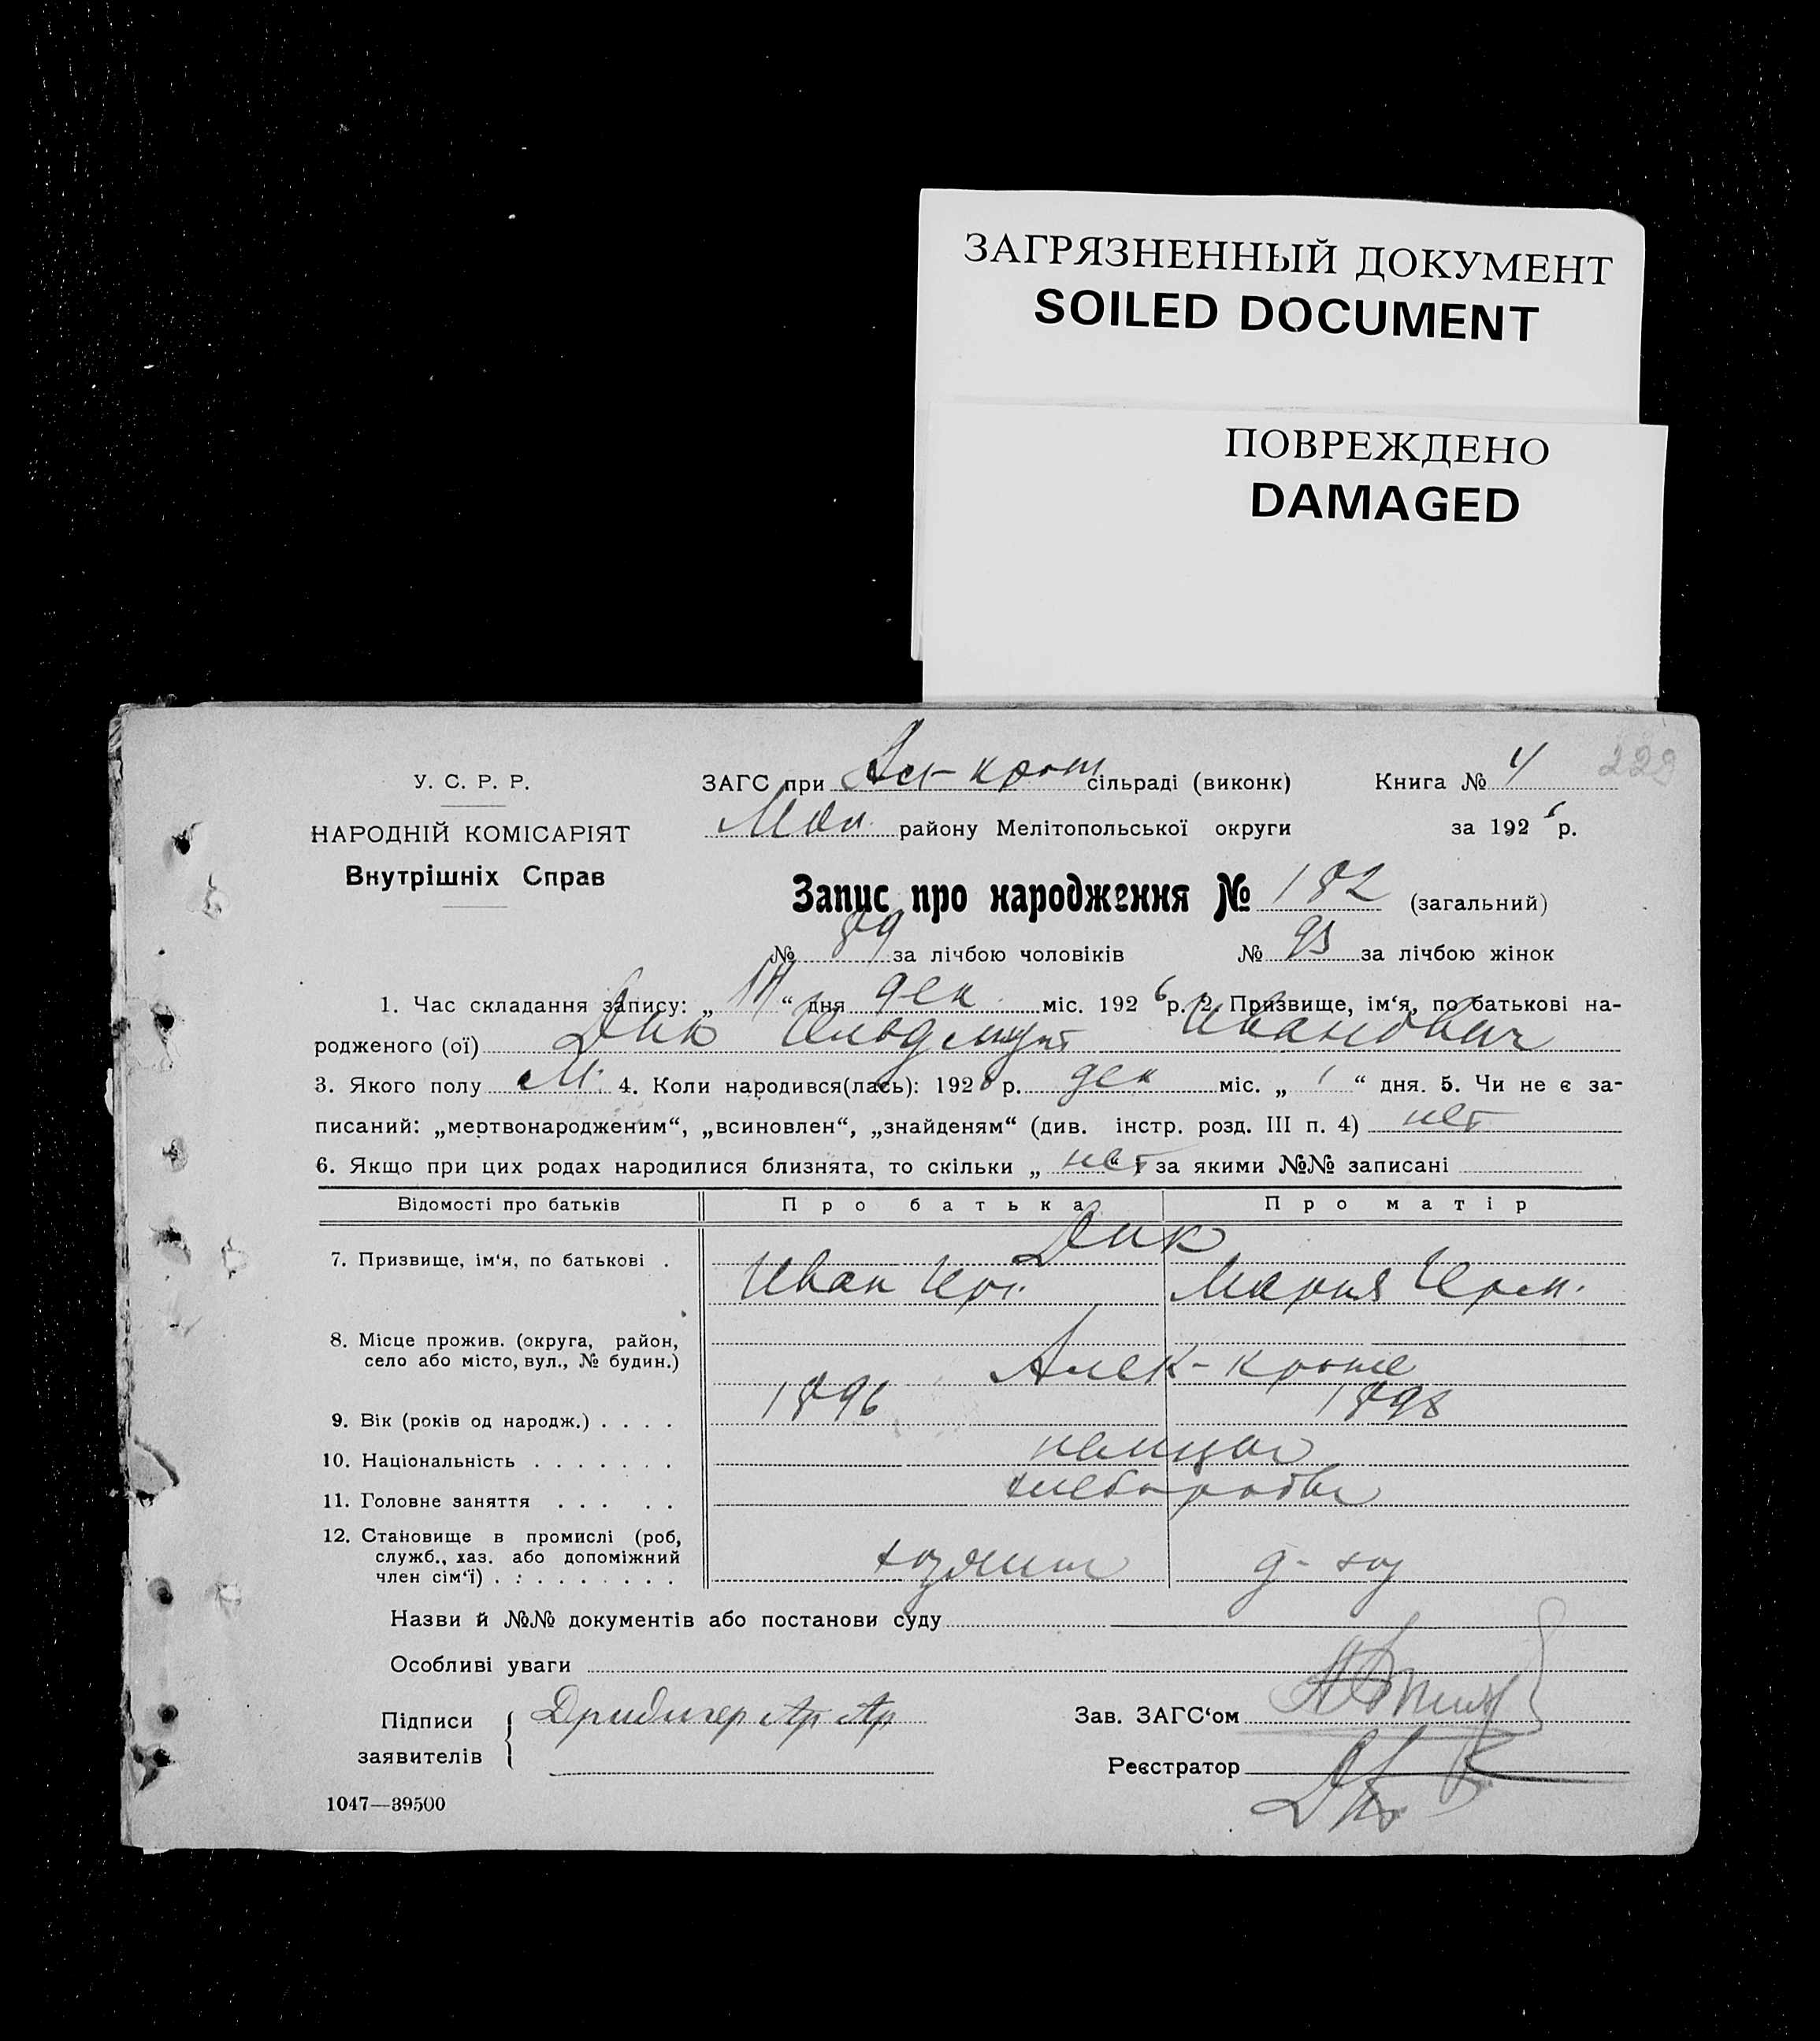 ЗАГРЯЗНЕННЫЙ ДОКУМЕНТ
SOILED DOCUMENT
ПОВРЕЖДЕНО
DAMAGED
229
У. С. Р. Р.
НАРОДНІЙ КОМІСАРІЯТ
Внутрішніх Справ
ЗАГС при сільраді (виконк) Книга № 4
Мол. району Мелітопольської округи за 1926 р.
Запис про народження № 182 (загальний)
№ 89 за лічбою чоловіків № 93 за лічбою жінок
1. Час складання запису: „ “ дня дек міс. 1926 р. 2. Призвище, ім‘я, по батькові на-
родженого (ої) Дик Иванович
3. Якого полу М. 4. Коли народився(лась): 1926 р. дек міс. „ 1 “ дня. 5. Чи не є за-
писаний: „мертвонародженим“, „всиновлен“, „знайденям“ (див. інстр. розд. III п. 4) нет
6. Якщо при цих родах народилися близнята, то скільки „ нет “ за якими №№ записані
Відомості про батьків Про батька Про матір
7. Призвище, ім‘я, по батькові . Дик
Иван Мария
8. Місце прожив. (округа, район,
село або місто, вул., № будин.) Алек-кроне
9. Вік (років од народж.) . . . . 1896 1898
10. Національність . . . . . . .
11. Головне заняття . . . . .
12. Становище в промислі (роб,
служб., хаз. або допоміжний
член сім‘ї) . : . . . . . . . . хозяин д-хоз
Назви й №№ документів або постанови суду
Особливі уваги
Підписи
заявителів Дридигер Ар Ар
Зав. ЗАГС‘ом
Реєстратор
1047—39500